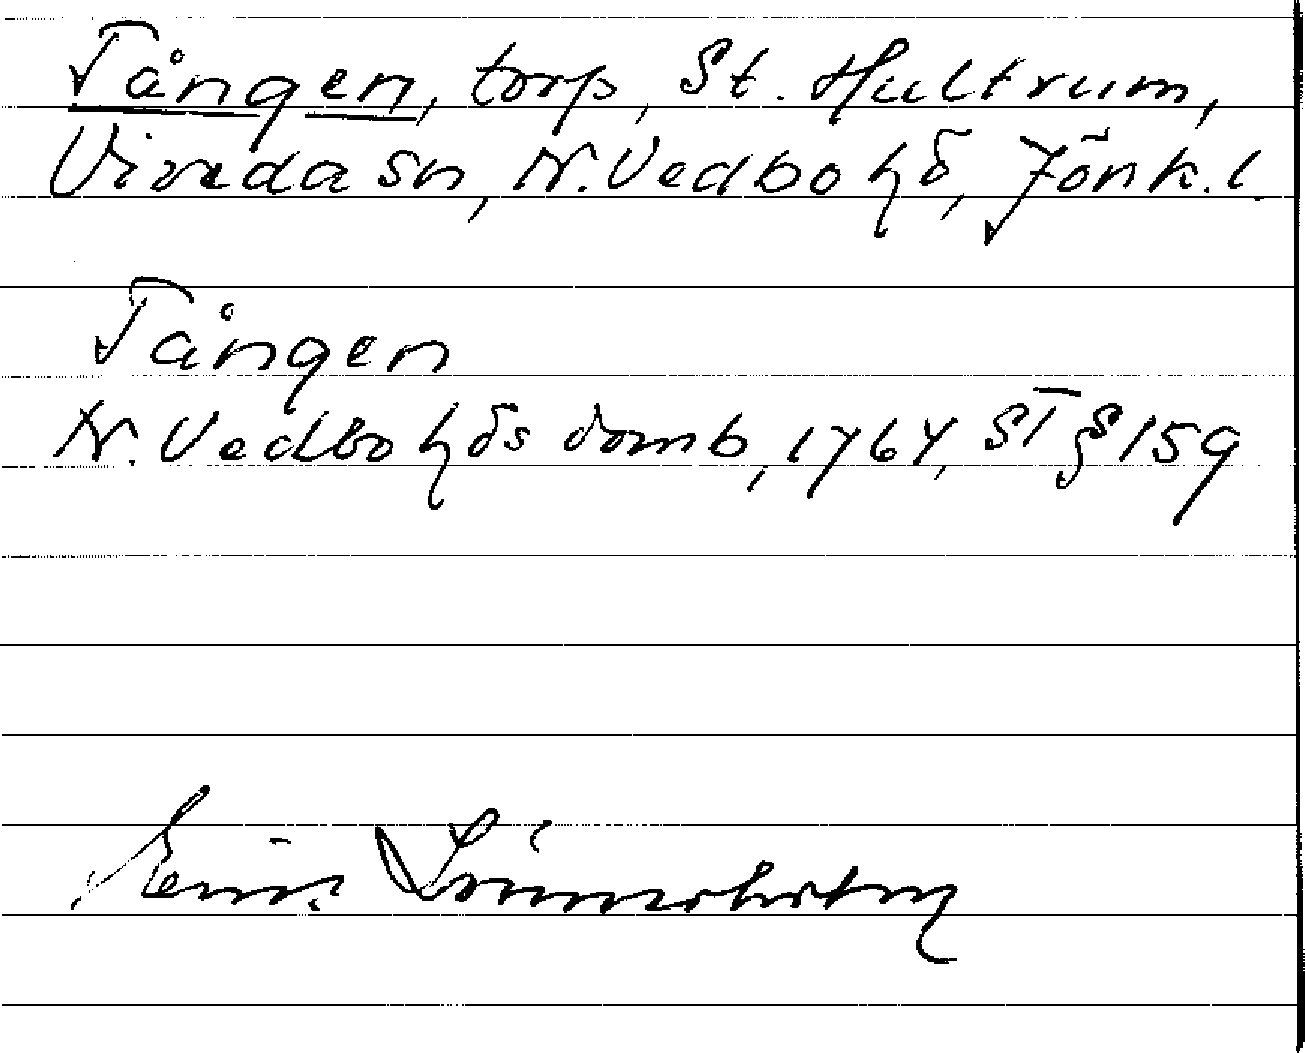 Tången, torp, St. Hultrum,
Vireda sn, N. Vedbo hd, Jönk. l.
Tången
N. Vedbo hds domb, 1764, ST § 159